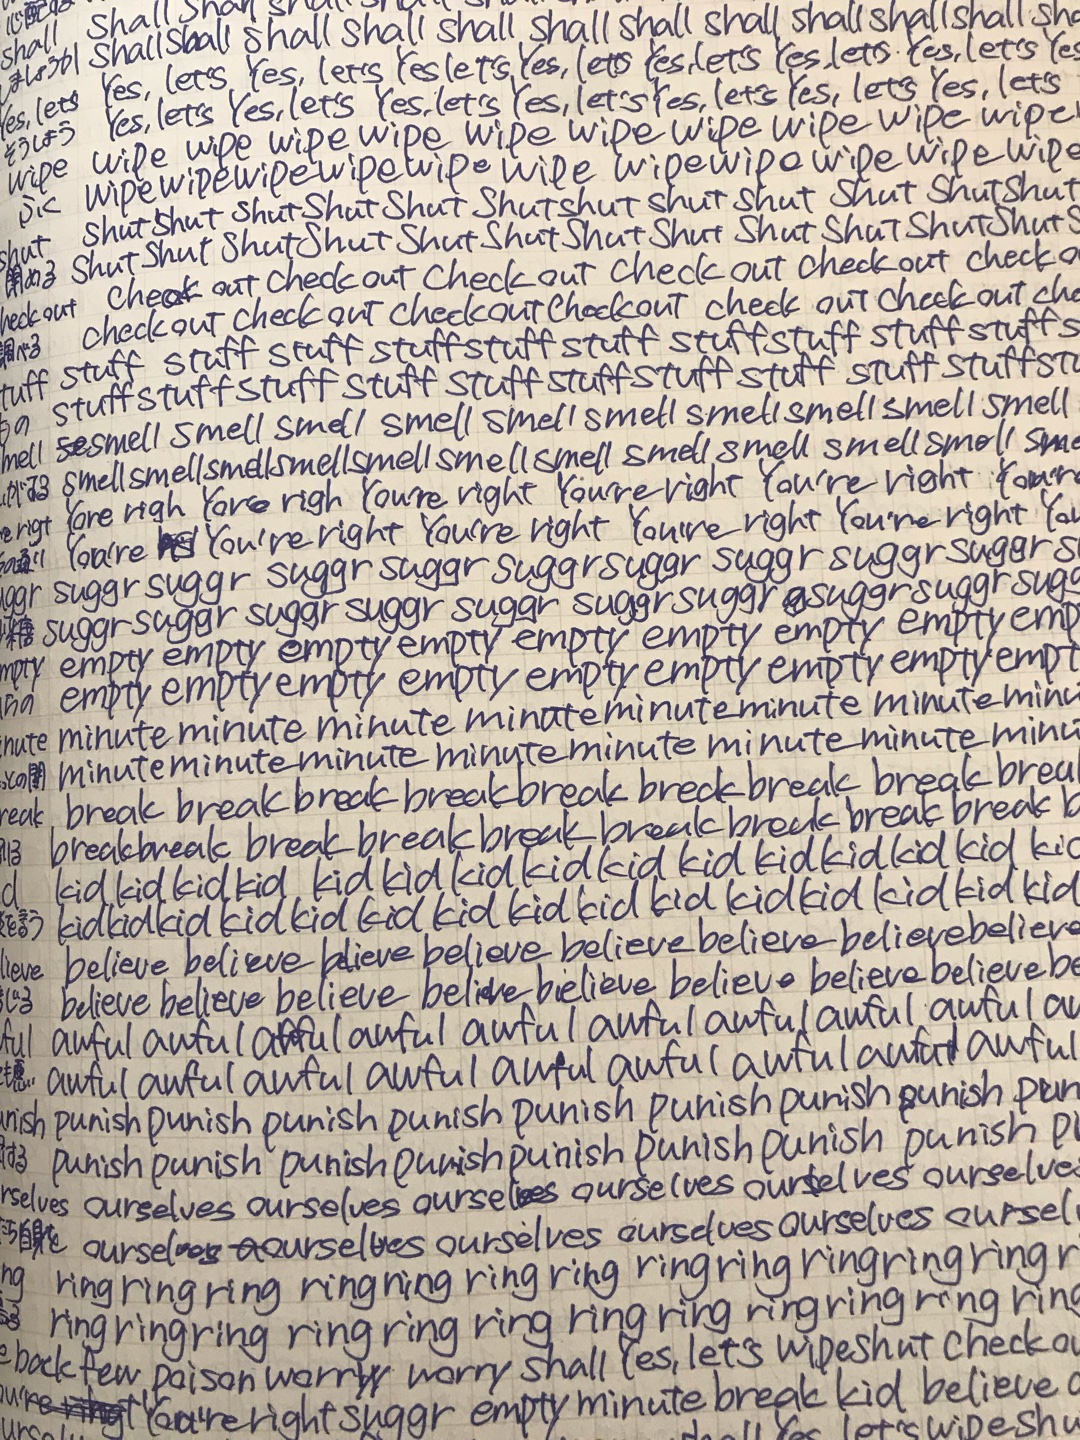 shall shall shall shall shall shall shall shall shall
shall shall shall shall shall shall shall shall shall shall
ましょうか Yes, let's Yes, let's Yes let's Yes, lets Yes, let's Yes, let's Yes, let's Yes
Yes, lets Yes, let's Yes, let's Yes, let's Yes, let's Yes, let's Yes, let's Yes, let's
そうしよう wipe wipe wipe wipe wipe wipe wipe wipe wipe
wipe wipe wipe wipe wipe wipe wipe wipe wipe wipe wipe
ふく shut shut shut shut shut shut shut shut shut shut shut
shut shut shut shut shut shut shut shut shut shut shut shut
閉める check out check out check out check out check out
check out check out check out check out check out check out check out
調べる stuff stuff stuff stuff stuff stuff stuff stuff stuff
stuff stuff stuff stuff stuff stuff stuff stuff stuff stuff
もの smell smell smell smell smell smell smell smell smell smell
smell smell smell smell smell smell smell smell smell smell smell
がする Yore righ Yore righ You're right You're right You're right You're
You're You're right You're right You're right You're right
suggr suggr suggr suggr suggr suggr suggr suggr
suggr suggr suggr suggr suggr suggr suggr suggr suggr
糖 empty empty empty empty empty empty empty empty
empty empty empty empty empty empty empty empty empty
minute minute minute minute minute minute minute
minute minute minute minute minute minute minute minute
break break break break break break break break break
break break break break break break break break break
kid kid kid kid kid kid kid kid kid kid kid kid kid
kid kid kid kid kid kid kid kid kid kid kid kid kid
を言う believe believe believe believe believe believe believe believe
believe believe believe believe believe believe believe believe
じる awful awful awful awful awful awful awful awful awful
awful awful awful awful awful awful awful awful awful
punish punish punish punish punish punish punish punish
する punish punish punish punish punish punish punish punish punish
ourselves ourselves ourselves ourselves ourselves ourselves
自身を ourselves ourselves ourselves ourselves ourselves
ring ring ring ring ring ring ring ring ring ring ring ring
ring ring ring ring ring ring ring ring ring ring ring
back few poison worry worry shall Yes, let's wipe shut check
You're right suggr empty minute break kid believe
Yes, let's wipe